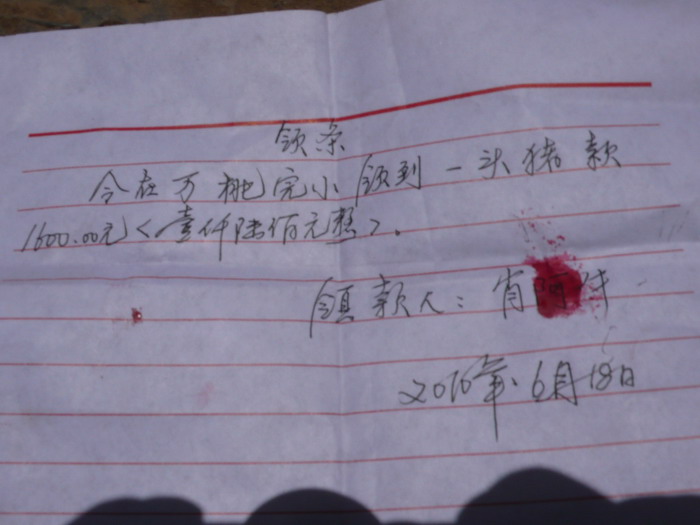 领条
今在万桃完小领到一头猪款
1600.00元<壹仟陆佰元整>.
领款人:肖阿
2010年.6月18日